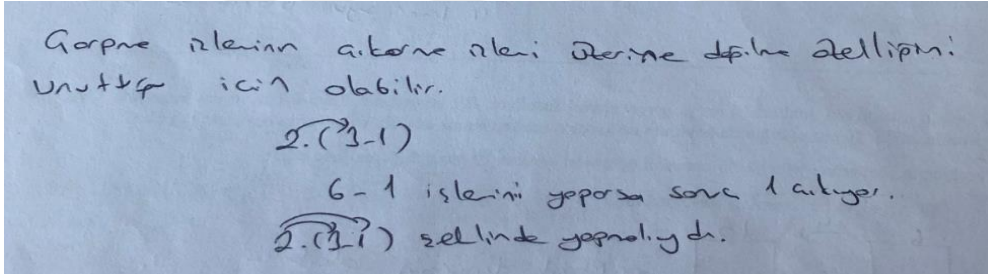 Çarpma işleminin çıkarma işlemi üzerine dağılma özelliğini
unuttuğu için olabilir.
2.(3-1)
6-1 işlemini yaparsa sonra 1 çıkıyor.
2.(3-1) şeklinde yapmalıydı.